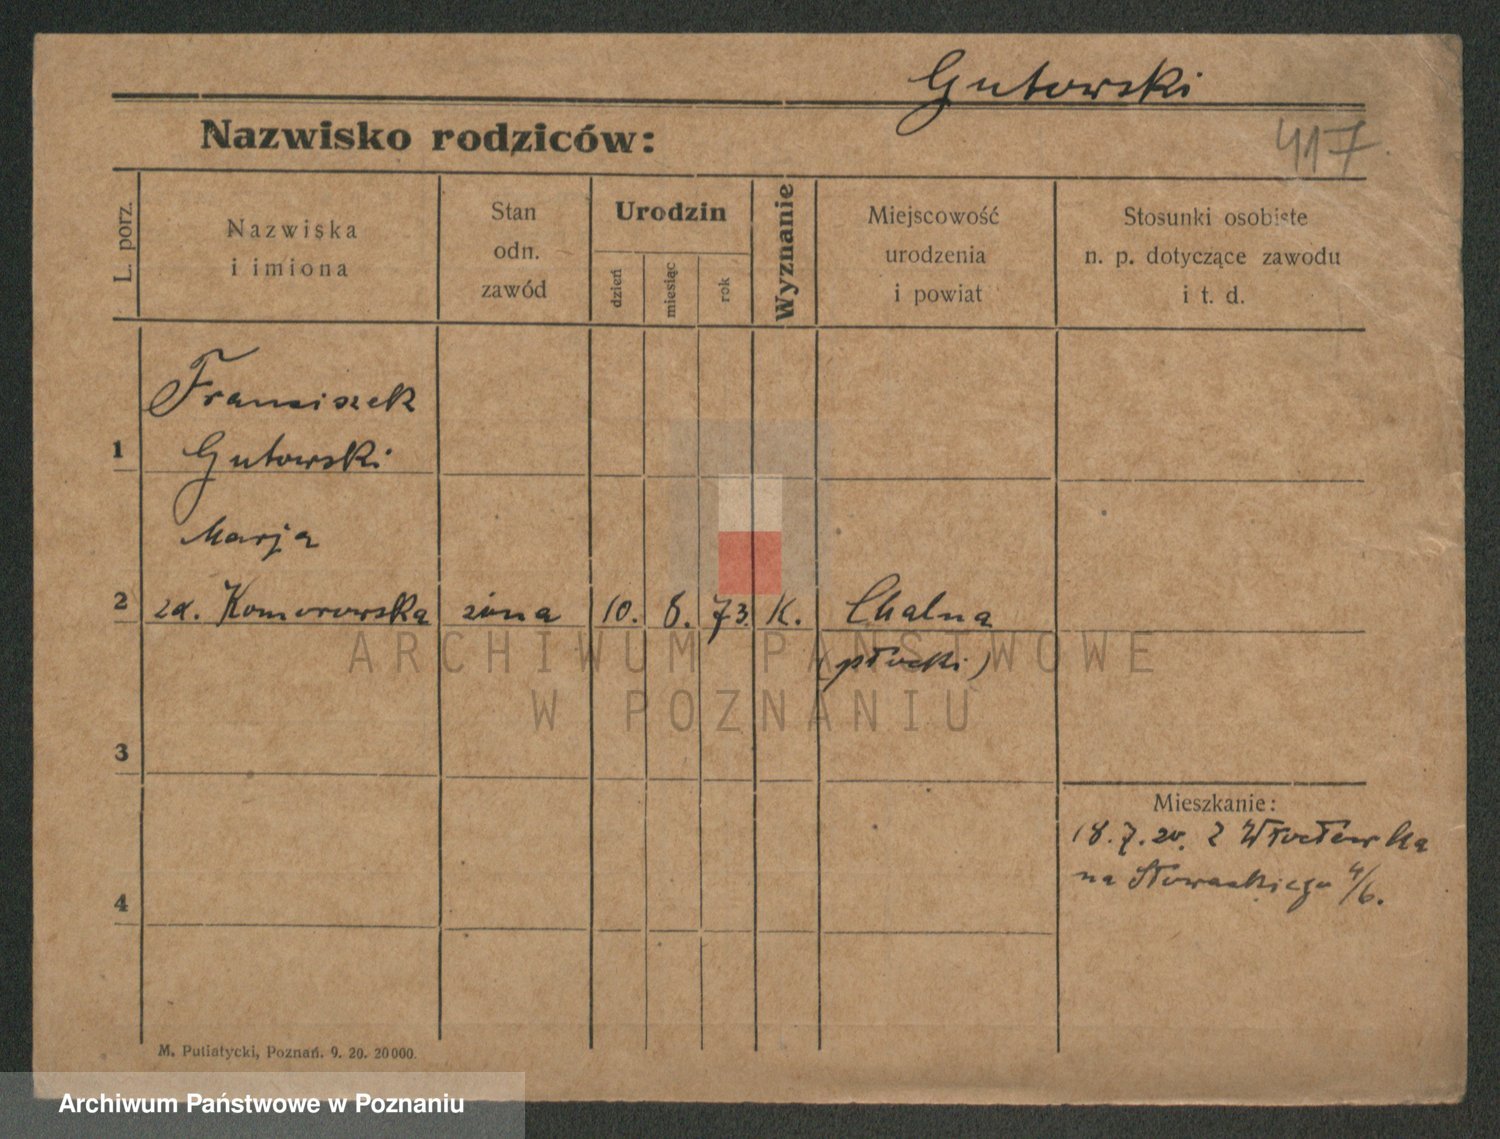 Gutowski
Nazwisko rodziców:
417
L. porz.
Nazwiska
i imiona
Stan
odn.
zawód
Urodzin
dzień
miesiąc
rok
Wyznanie
Miejscowość
urodzenia
i powiat
Stosunki osobiste
n. p. dotyczące zawodu
i t. d.
Franciszek
1 Gutowski
Marja
2 zd. Komorowska żona 10. 8. 73. K. Chalna
(płocki)
ARCHIWUM PAŃSTWOWE
W POZNANIU
3
Mieszkanie:
18.7.20. z Włocławka
na Słowackiego 4/6.
4
M. Putiatycki, Poznań. 9. 20. 20000.
Archiwum Państwowe w Poznaniu